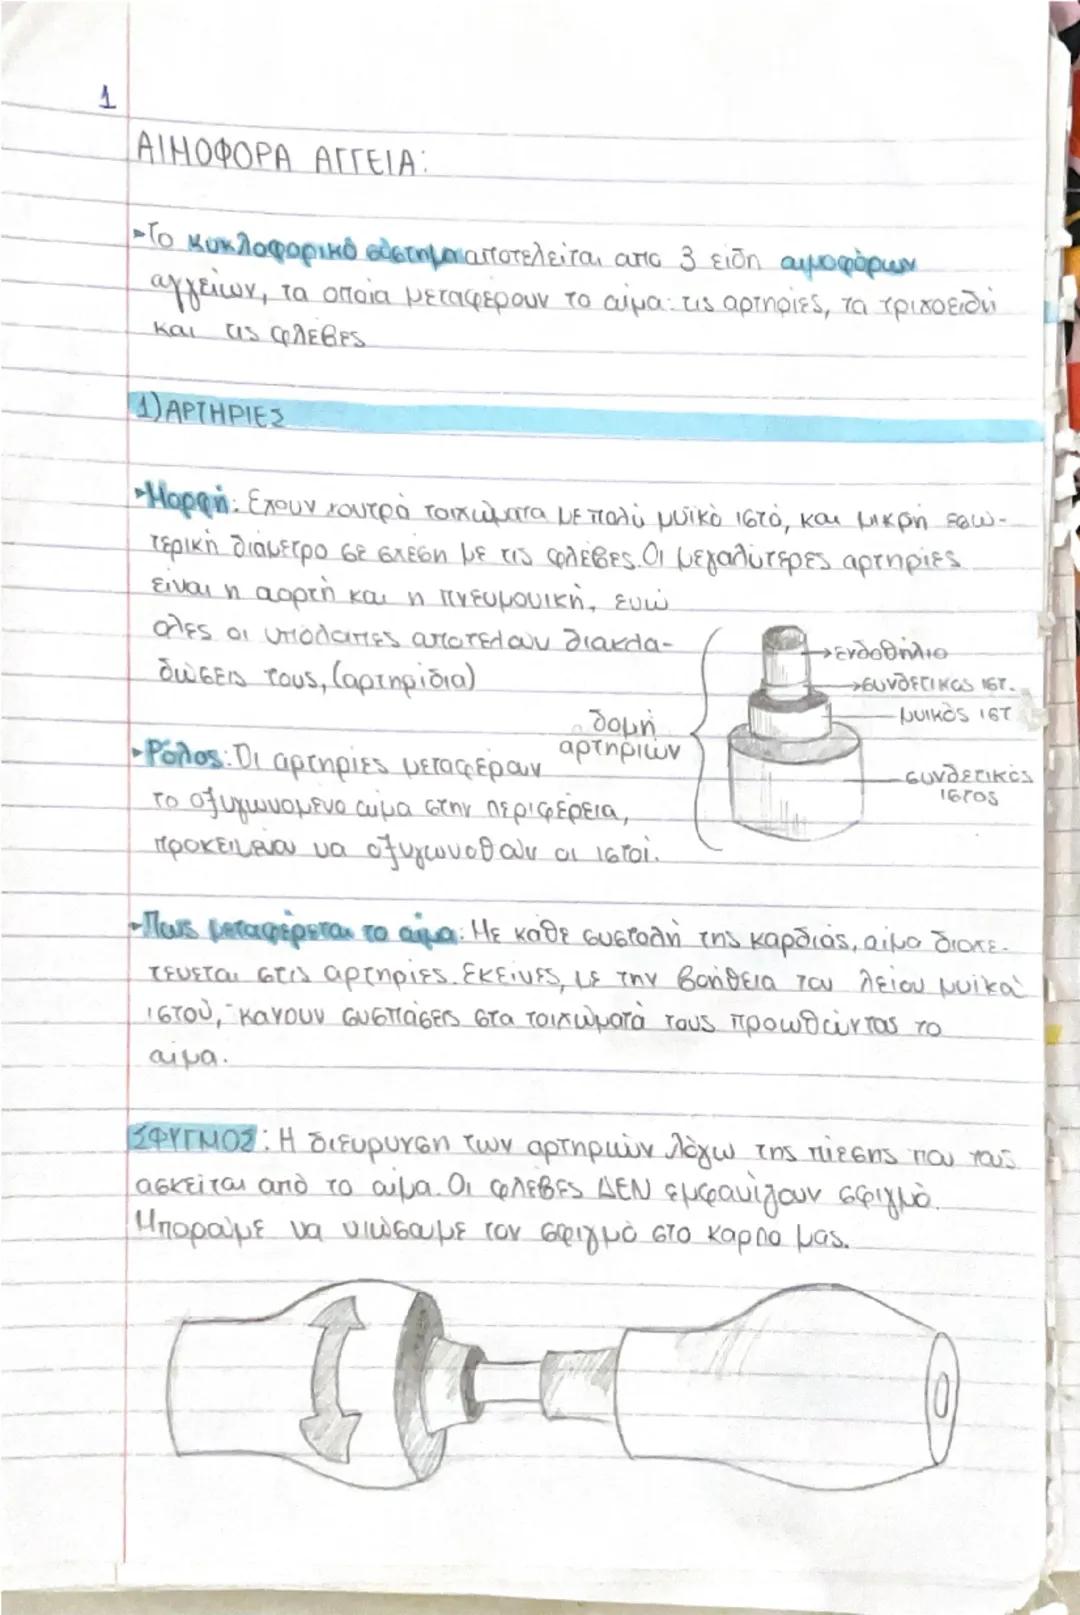 1
ΑΙΜΟΦΟΡΑ ΑΓΓΕΙΑ:
▸Το κυκλοφορικό σύστημα αποτελείται απο 3 είδη αιμοφόρων
αγγείων, τα οποία μεταφέρουν το αίμα: τις αρτηρίες, τα τριχοειδή
και τις φλέβες
1) ΑΡΤΗΡΙΕΣ
▸Μορφή: Έχουν χοντρά τοιχώματα με πολύ μυϊκό ιστό, και μικρή εσω-
τερική διάμετρο σε σχέση με τις φλέβες. Οι μεγαλύτερες αρτηρίες
είναι η αορτή και η πνευμονική, ενώ
όλες οι υπόλοιπες αποτελούν διακλα-
δώσεις τους, (αρτηρίδια)
δομή
αρτηριών
→ενδοθήλιο
→συνδετικός ιστ.
μυικός ιστ
συνδετικός
ιστος
▸Ρόλος: Οι αρτηρίες μεταφέρουν
το οξυγωνομένο αίμα στην περιφέρεια,
προκειμένου να οξυγωνοθούν οι ιστοί.
▸Πως μεταφέρεται το αίμα: Με κάθε συστολή της καρδιάς, αίμα διοχε-
τεύεται στις αρτηρίες. Εκείνες, με την βοήθεια του λείου μυικού
ιστού, κανουν συσπάσεις στα τοιχώματά τους προωθώντας το
αίμα.
ΣΦΥΓΜΟΣ: Η διεύρυνση των αρτηριών λόγω της πίεσης που τους
ασκείται από το αίμα. Οι φλέβες ΔΕΝ εμφανίζουν σφιγμό.
Μπορούμε να νιώσουμε τον σφιγμό στο καρπο μας.